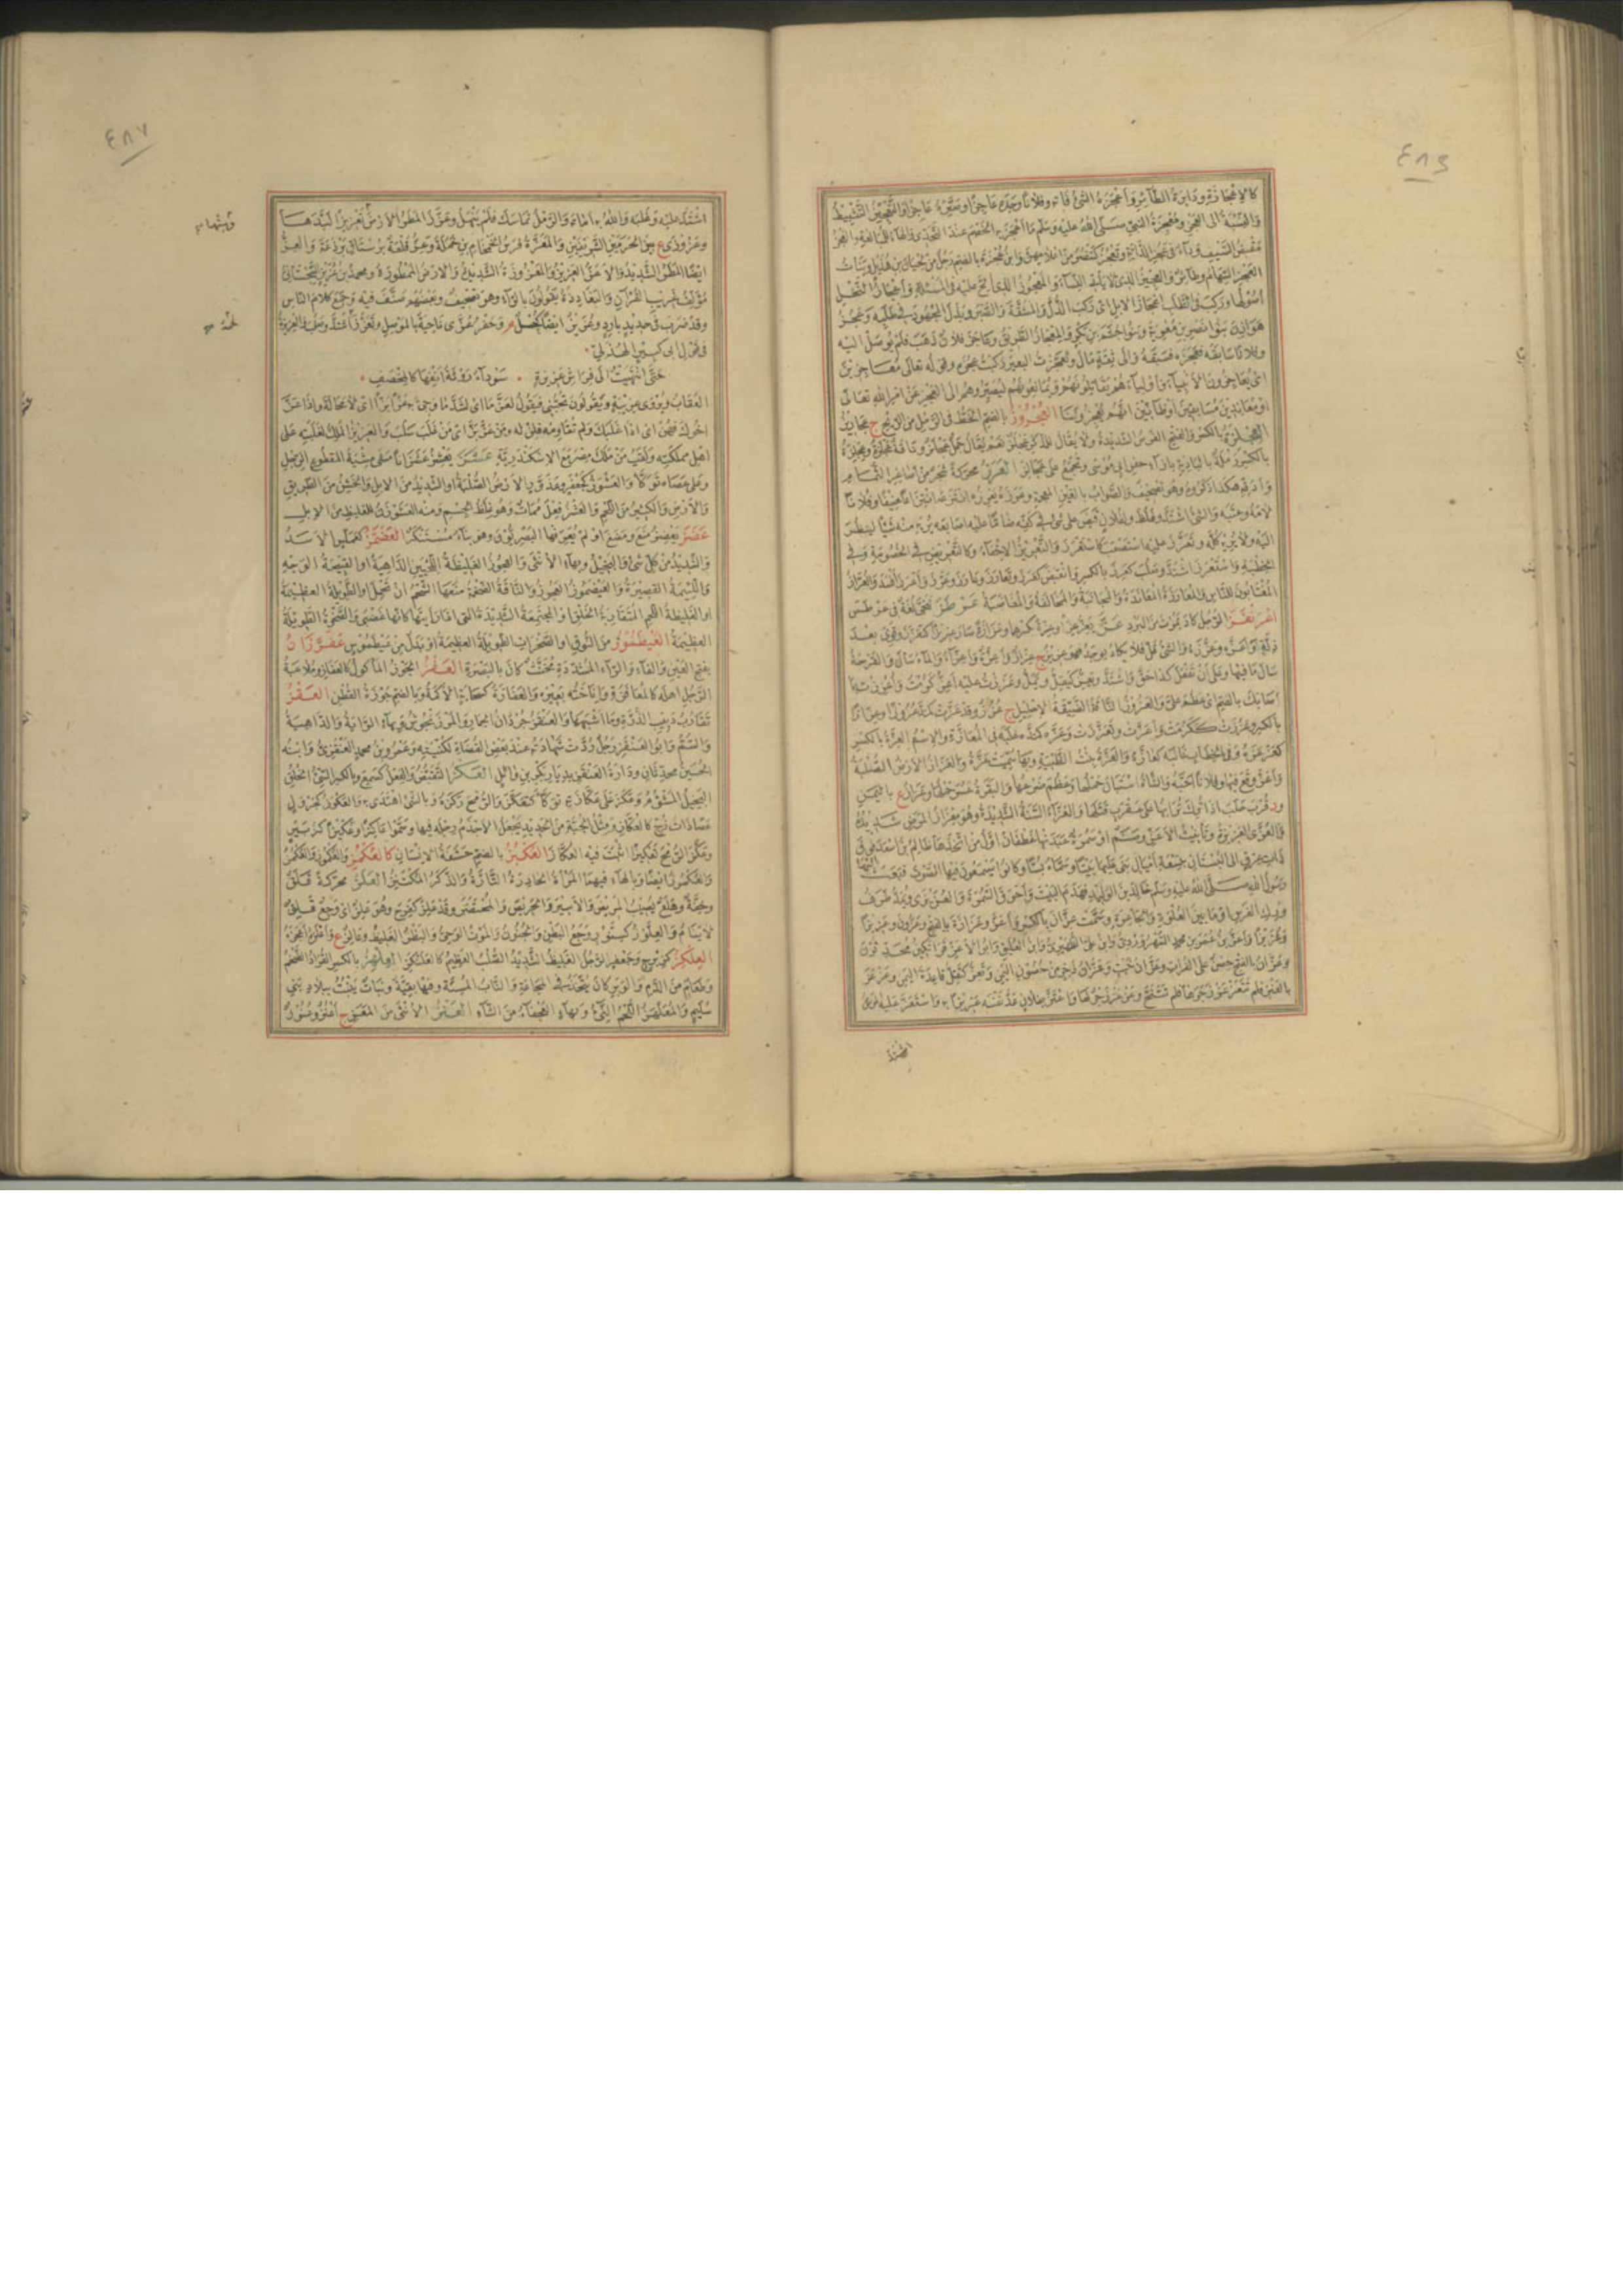 ٤٨٦
كالاعجازة ودابرة الطائر واعجزه الشئ فاته وفلانا وجده عاجزا وصيره عاجزا والتعجيز التثبيط
والنسبة الى العجز ومعجزة النبى صلى الله عليه وسلم ما اعجز به الخصم عند التحدى والهاء للمبالغة والعجز
مقبض السيف وداء فى عجز الدابة
العجز السهام وطائر والعجيز الذى لا يأتى النساء والمعجوز الذى الح عليه فى المسئلة واعجاز النخل
اصولها وركب فى الطلب اعجاز الابل اى ركب الذل والمشقة والصبر وبذل المجهود فى طلبه وعجز
هوازن بنو نصر بن معوية وبنو جشم بن بكر والمعجاز الطريق وعاجز فلان ذهب فلم يوصل اليه
وفلانا سابقه فعجزه فسبقه والى ثقة مال وتعجزت البعير ركبت عجزه وقوله تعالى معاجزين
اى يعاجزون الانبياء واولياءهم يقاتلونهم ويمانعونهم ليصيروهم الى العجز عن امر الله تعالى
او معاندين مسابقين او ظانين انهم يعجزوننا العجروز بالضم الخط فى الرمل من الريح ج عجاريز
العجلزة بالكسر والفتح الفرس الشديدة ولا يقال للذكر عجلز نعم يقال جمل عجلز وناقة عجلزة وعجلزة
بالكسر رملة بالبادية بازاء حفر ابى موسى وتجمع على عجالز العرز محركة شجر من اصاغر الثمام
وادقه هكذا ذكروه وهو تصحيف والصواب بالغين المعجمة وعرزه يعرزه انتزعه انتزاعا عنيفا وفلانا
لامه وعتبه والشئ اشتد وغلظ ولفلان قبض على شئ فى كفه ضاما عليه اصابعه يريه منه شيئا لينظر
اليه ولا يريه كله وتعرز عليه استصعب كاستعرز والتعريز الاخفاء وكالتعريض فى الخصومة وفى
الخطبة واستعرز اشتد وصلب كعرز بالكسر وانقبض كعرز وتعارز وعارز وعرز واعرز افسد والعراز
المغتاب للناس والمعارزة المعاندة والمجانبة والمخالفة والمغاضبة
اعرنفز الرجل كاد يموت من البرد عز يعز عزا وعزة بكسرهما وعزازة صار عزيزا كتعزز وقوى بعد
ذلة واعزه وعززه والشئ قل فلا يكاد يوجد فهو عزيز ج عزاز واعزة واعزاء والماء سال والقرحة
سال ما فيها وعلى ان تفعل كذا حق واشتد وعززت عليه اعز كرمت واعززت بما
اصابك بالضم اى عظم على والعزوز الناقة الضيقة الاحليل ج عزز وقد عزت كمد عزوزا وعزازا
بالكسر وعززت ككرمت واعزت وتعززت وعزه كمده غلبه فى المعازة والاسم العزة بالكسر
كعزعزه وفى الخطاب غالبه كعازه والعزة بنت الظبية وبها سميت عزة والعزاز الارض الصلبة
واعز وقع فيها وفلانا احبه والشاة استبان حملها وعظم ضرعها والبقرة عسر حملها وعزاز ع باليمن
ود قرب حلب اذا ترك ترابها على عقرب قتلها والعزاء السنة الشديدة وهو معزاز المرض شديده
والعزى العزيزة وتأنيث الاعز وصنم او سمرة عبدتها غطفان اول من اتخذها ظالم بن اسعد فوق
ذات عرق الى البستان بتسعة اميال بنى عليها بيتا وسماه بسا وكانوا يسمعون فيها الصوت فبعث اليها
رسول الله صلى الله عليه وسلم خالد بن الوليد فهدم البيت واحرق السمرة والعزيزى ويمد طرف
ورك الفرس او ما بين العكوة والجاعرة وسمت عزان بالكسر واعز وعزازة بالفتح وعزون وعزيزا
وعزيزا واعز بن عمر بن محمد السهروردى وابن على الظهيرى وابن العليق وابو الاعز قراتكين محدثون
وعزان بالفتح حصن على الفرات وعزان خبت وعزان ذخر من حصون اليمن وتعز كتقل قاعدة اليمن وعزعز
بالعنز فلم تتعزعز زجرها فلم تتنح وعز عز زجر لها واعتز بفلان عد نفسه عزيزا به واستعز عليه المرض
اشتد
٤٨٧
اشتد عليه وغلبه والله به اماته والرمل تماسك فلم ينهل وعزز المطر الارض تعزيزا لبدها
وعزوزى ع بين الحرمين الشريفين والمعزة فرس الخمخام بن حملة وعز قلعة برستاق برذعة والعز
ايضا المطر الشديد والاعز العزيز والمعزوزة الشديدة والارض الممطورة ومحمد بن عزيز السجستانى
مؤلف غريب القرآن والبغاددة يقولون بالراء وهو تصحيف وبعضهم صنف فيه وجمع كلام الناس
وقد ضرب فى حديد بارد وعزيز ايضا كحل م وحفر عزى ناحية بالموصل وتعزز لحمه اشتد وصلب والعزيزة
فى قول ابى كبير الهذلى
حتى انتهيت الى فراش عزيزة • سوداء روثة انفها كالمخصف •
العقاب ويروى عزيبة ويقولون تحبنى فيقول لعز ما اى لشد ما وجئ به عزا بزا اى لا محالة واذا عز
اخوك فهن اى اذا غلبك ولم تقاومه فلن له ومن عز بز اى من غلب سلب والعزيز الملك لغلبته على
اهل مملكته ولقب من ملك مصر مع الاسكندرية عشز يعشز عشزانا مشى مشية المقطوع الرجل
وعلى عصاه توكأ والعشوز كجعفر وعذور الارض الصلبة او الشديد من الابل والخشن من الطريق
والارض والكثير من اللحم والعشز فعل ممات وهو غلظ الجسم ومنه العشوزن للغليظ من الابل
عضز يعضز منع ومضغ او لم يعرفها البصريون وهو بناء مستنكر العضمز كعملس الاسد
والشديد من كل شئ والبخيل وبهاء الانثى والعجوز الغليظة اللحيين الداهية او القبيحة الوجه
واللئيمة القصيرة والعيضموز العجوز والناقة الضخمة منعها الشحم ان تحمل والطويلة العظيمة
او الغليظة اللحم المتقاربة الخلق او المجتمعة الشديدة التى اذا رأيتها كانها غضبى والصخرة الطويلة
العظيمة العيطموز من النوق او الصخرات الطويلة العظيمة او بدل من عيطموس عفزران
بفتح العين والفاء والراء المشددة مخنث كان بالبصرة العفز الجوز المأكول كالعفاز وملاعبة
الرجل اهله كالمعافزة واناخته بعيره والعفازة كسحابة الاكمة وبالضم جوزة القطن العقز
تقارب دبيب الذرة وما اشبهها والعنقز جردان الحمار والمرزنجوش وبهاء الراية والداهية
والسم وابو العنقز رجل ردت شهادته عند بعض القضاة لكنيته وعمرو بن محمد العنقزى وابنه
الحسين محدثان ودارة العنقز بديار بكر بن وائل العكز التقبض والفعل كسمع وبالكسر السئ الخلق
البخيل المشؤم وعكز على عكازته توكأ كتعكز والرمح ركزه وبالشئ اهتدى به والعكوز كجرول
عصا ذات زج كالعكاز ومثل الجبة من الحديد يجعل الاجذم رجله فيها وسموا عاكزا وعكيزا كزبير
وعكز الرمح تعكيزا اثبت فيه العكاز العكبز بالضم حشفة الانسان كالعكمز والعكموز والعكمز
والعكموز ايضا وبالهاء فيهما المرأة الحادرة التارة والذكر المكتنز العلز محركة قلق
وخفة وهلع يصيب المريض والاسير والحريص والمحتضر وقد علز كفرح وهو علز اى وجع قلق
لا ينام والعلوز كسنور وجع البطن والجنون والموت الوحى والبظر الغليظ وعالز ع واعلزه اعجزه
العلكز كزبرج وجعفر الرجل الغليظ الشديد الصلب العظيم كالعلنكز العلهز بالكسر القراد الضخم
وطعام من الدم والوبر كان يتخذ فى المجاعة والناب المسنة وفيها بقية ونبات ينبت ببلاد بنى
سليم والمعلهز اللحم النئ وبهاء العجفاء من الشاء العنز الانثى من المعز ج اعنز وعنوز